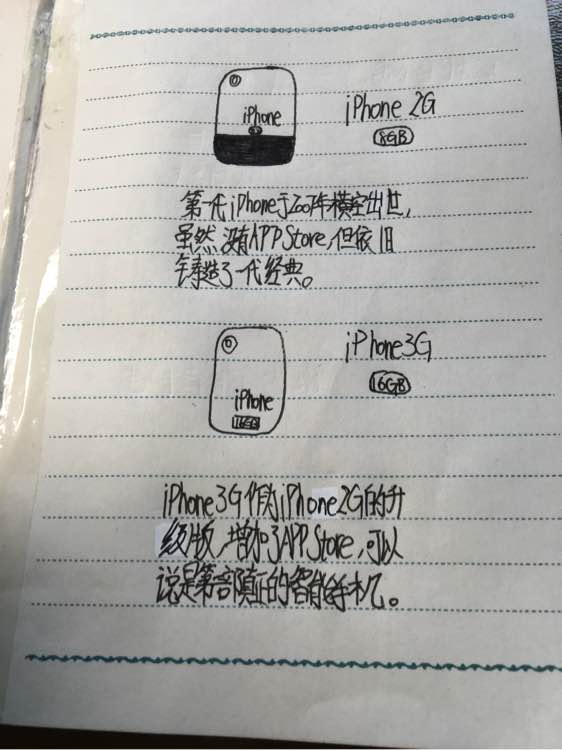 iPhone
iPhone 2G
8GB
第一代iPhone于2007年横空出世,
虽然没有APP Store,但依旧
铸造了一代经典。
iPhone3G
16GB
iPhone
16GB
iPhone3G作为iPhone2G的升
级版,增加了APP Store,可以
说是第一部真正的智能手机。